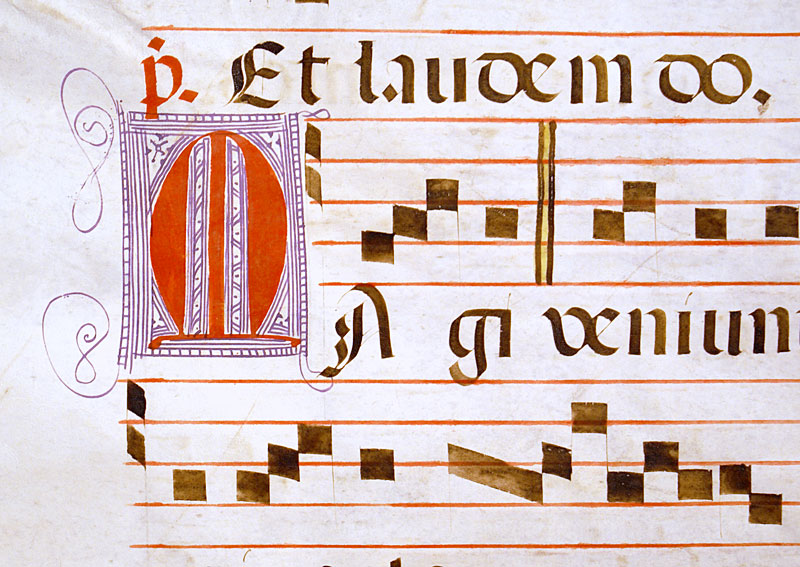 p̃. Et laudem do.
MA gi veniun